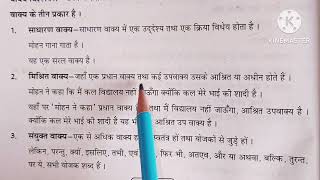 वाक्य के तीन प्रकार हैं ।
KINEMASTER
1. साधारण वाक्य— साधारण वाक्य में एक उद्देश्य तथा एक क्रिया विधेय होता है ।
मोहन गाना गाता है ।
यह एक सरल वाक्य है ।
2. मिश्रित वाक्य—जहाँ एक प्रधान वाक्य तथा कई उपवाक्य उसके आश्रित या अधीन होते हैं ।
मोहन ने कहा कि मैं कल विद्यालय नहीं जाऊँगा क्योंकि कल मेरे भाई की शादी है ।
यहाँ पर 'मोहन ने कहा' प्रधान तथा मैं विद्यालय नहीं जाऊँगा, आश्रित उपवाक्य है ।
क्योंकि कल मेरे भाई की शादी है यह भी आश्रित उप वाक्य है ।
3. संयुक्त वाक्य— एक से अधिक वाक्य स्वतंत्र हों तथा योजकों से जुड़े हों ।
लेकिन, परन्तु, क्यों, इसलिए, तभी, एवं, फिर भी, अतएव, और या अथवा, बल्कि, तुरन्त,
पर ये, सभी योजक शब्द हैं ।